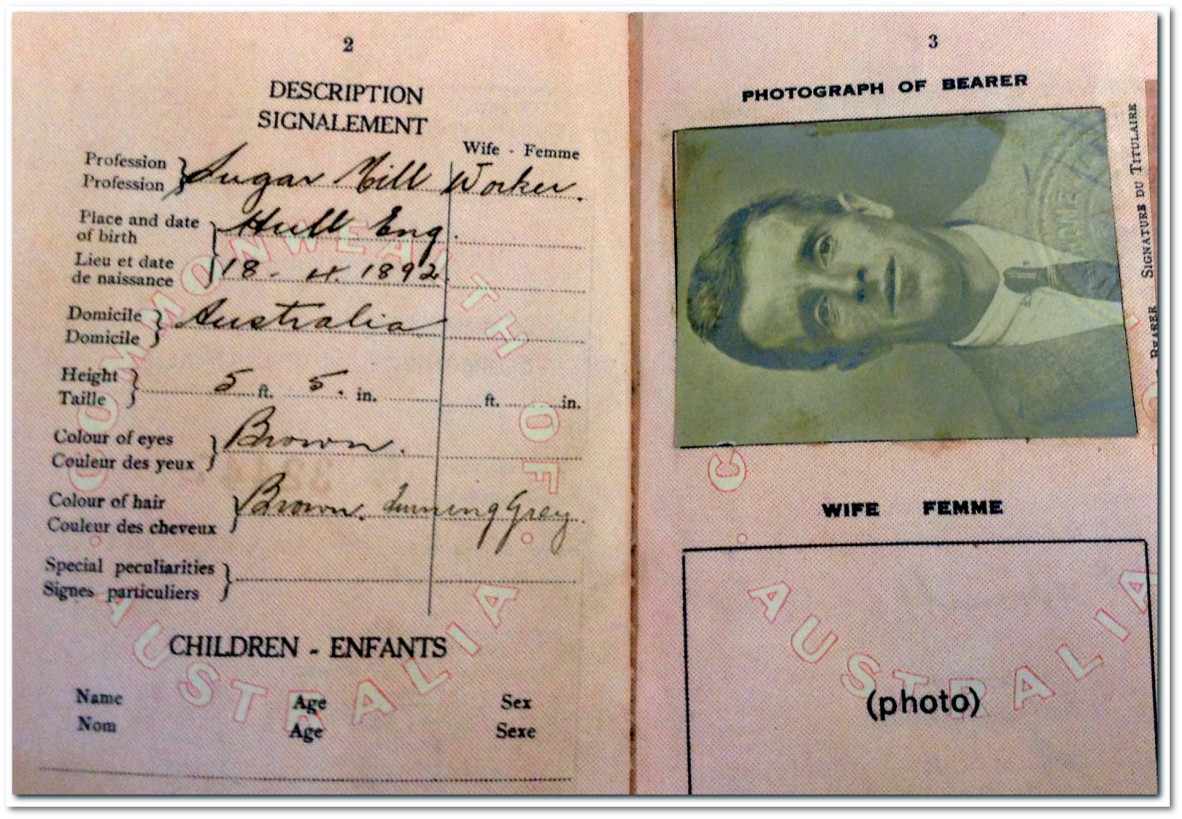 2
DESCRIPTION
SIGNALEMENT
Wife - Femme
Profession
Profession
Sugar Mill Worker.
Place and date
of birth
Hull Eng.
Lieu et date
de naissance
18 - 4. 1892
Domicile
Domicile
Australia
Height
Taille
5 ft. 5. in. ft. in.
Colour of eyes
Couleur des yeux
Brown.
Colour of hair
Couleur des cheveux
Brown. turning Grey.
Special peculiarities
Signes particuliers
CHILDREN - ENFANTS
Name Age Sex
Nom Age Sexe
COMMONWEALTH OF AUSTRALIA
3
PHOTOGRAPH OF BEARER
BEARER SIGNATURE DU TITULAIRE
WIFE FEMME
(photo)
C
AUSTRALIA